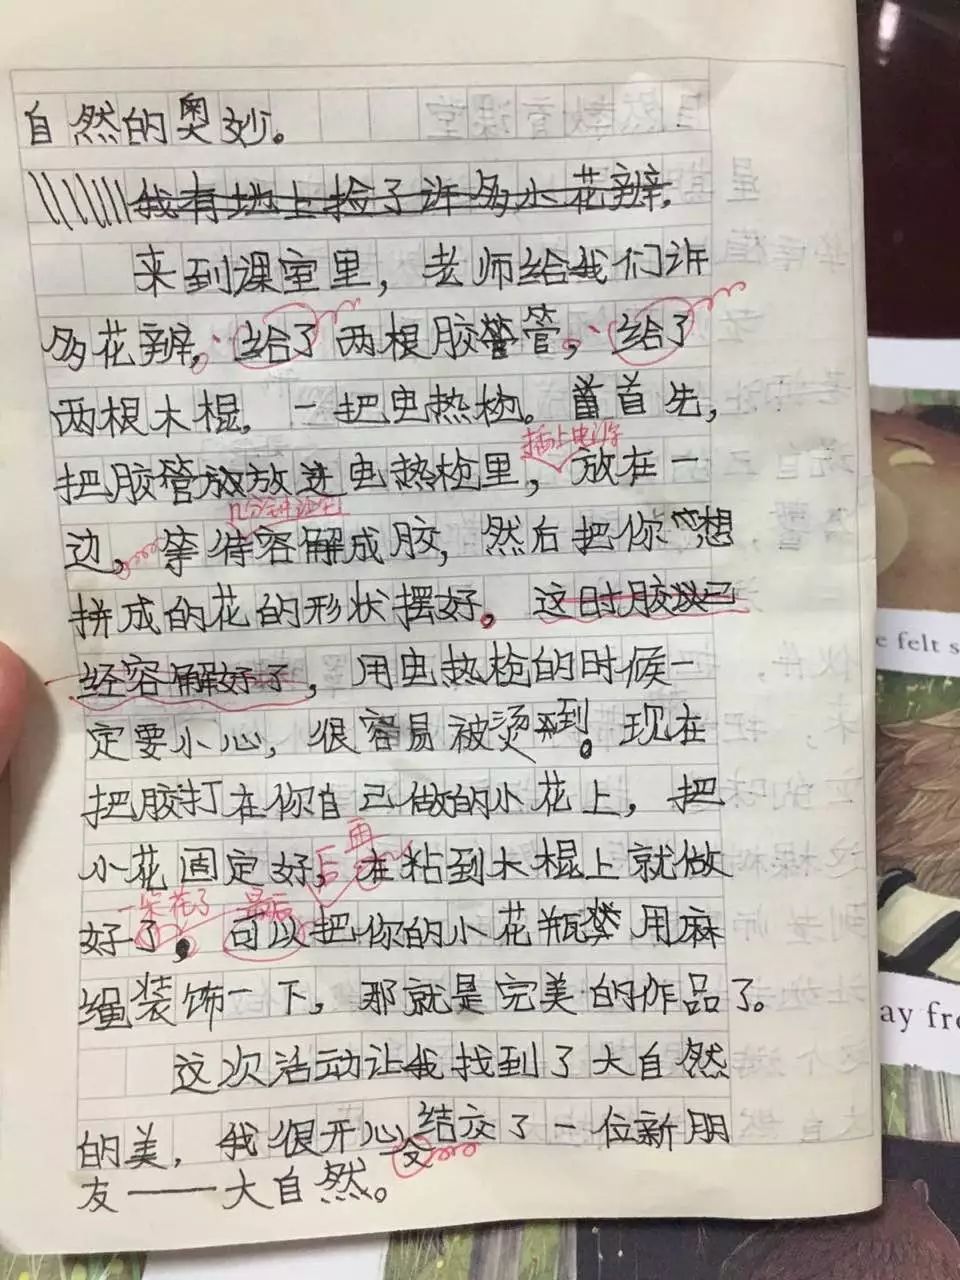 自然的奥妙。
我有地上捡了许多小花辨。
来到课室里，老师给我们许
多花辨，给了两根胶管，给了
两根木棍，一把电热枪。首先，
插上电源
把胶管放进电热枪里，放在一
几分钟过后
边，等待容解成胶，然后把你想
拼成的花的形状摆好。这时胶以已
经容解好了，用电热枪的时候一
定要小心，很容易被烫到。现在
把胶打在你自己做的小花上，把
后再
小花固定好，在粘到木棍上就做
一朵花了 最后
好了，可以把你的小花瓶用麻
绳装饰一下，那就是完美的作品了。
这次活动让我找到了大自然
的美，我很开心交结交了一位新朋
友——大自然。
felt s
ay fro